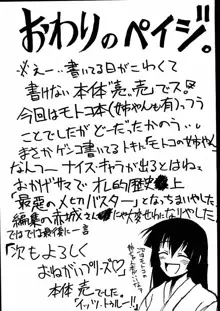 おわりのペイジ。
※えー…書いてる日がこわくて
書けない本体売、売でス。
今回はモトコ本(姉ちゃんも有)っつう
ことでしたがどーだったかのう…。
まさかゲンコ書いてるトキに「モトコの姉ちゃん」
なんつー ナイス・キャラが出るとはねェ
おかげサマで オレ的歴史上
「最悪のメ切りバスター」となっちまいやした
編集の赤城さんにゃ大変せわになりやした
ではでは最後に一言
「次もよろしく
おねがいプリーズ♡」
本体 売でした。
「イッツ・トゥルー!!」